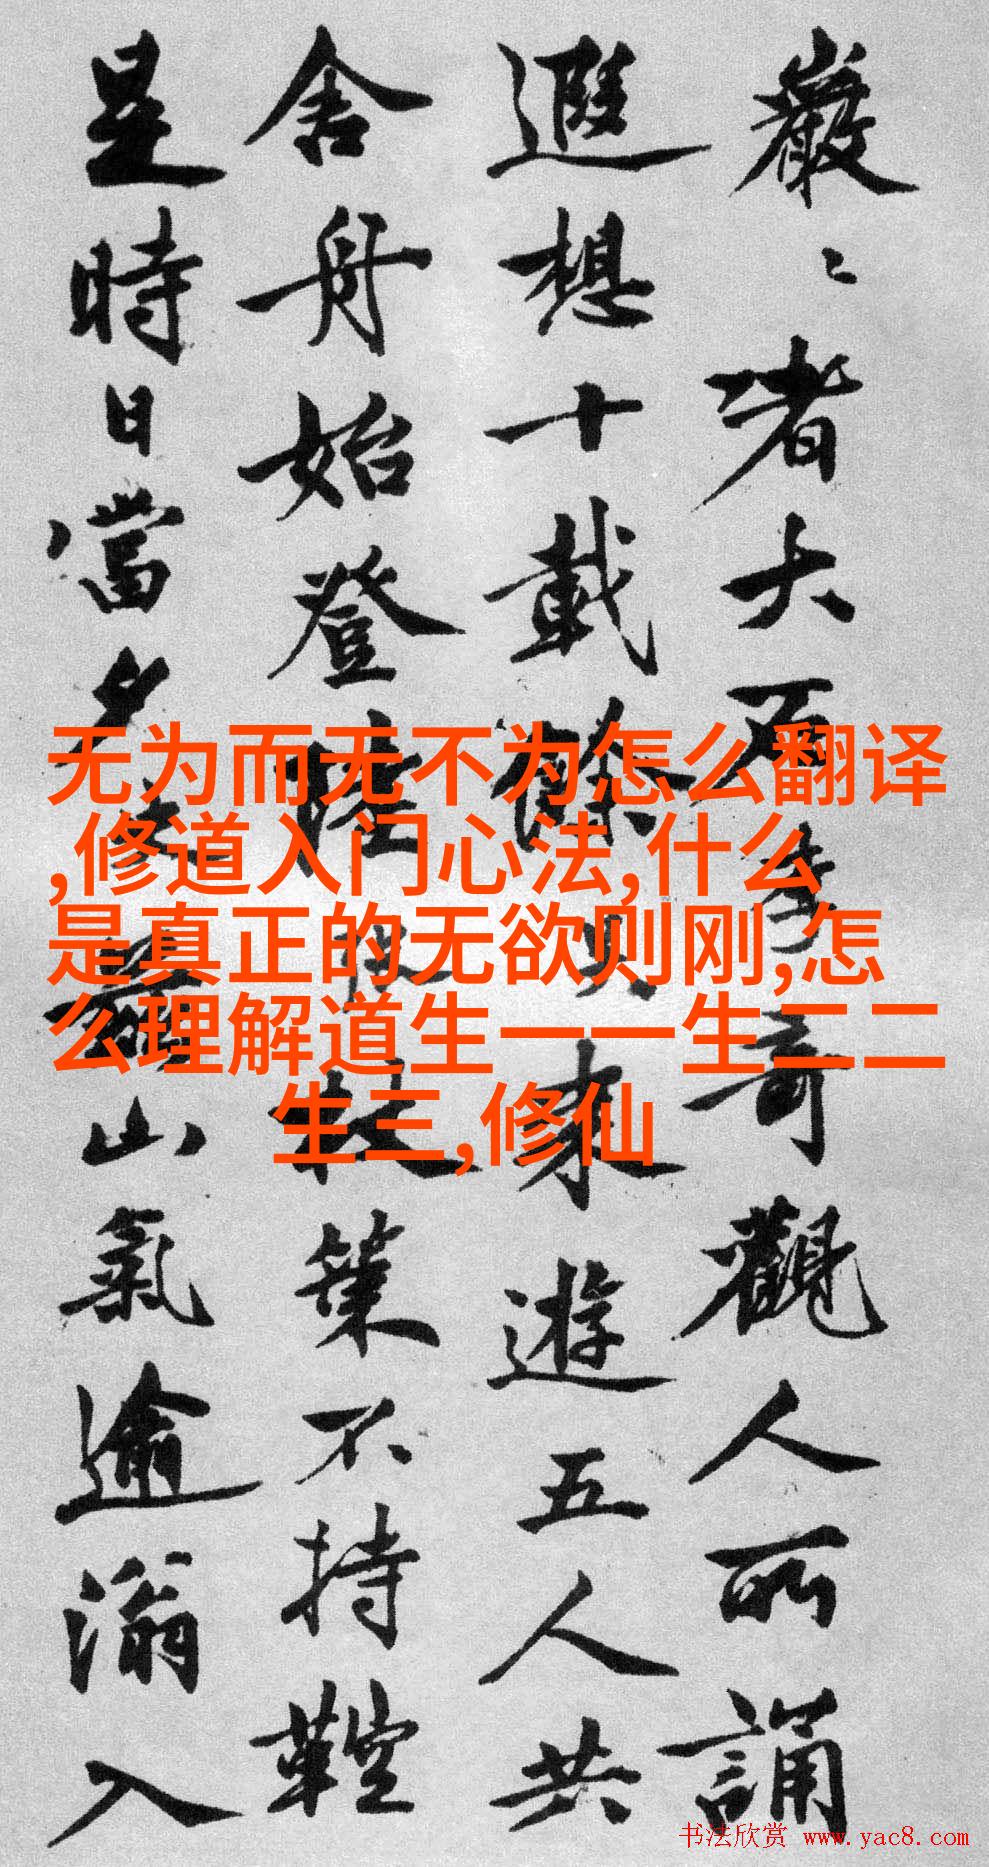 巖〻者大而奇奇觀人所誦
遐想十載餘以來遊五人共
舍舟始登陸杖策不持鞚
是時日當夕山氣逾滃入
无为而无不为怎么翻译
,修道入门心法,什么
是真正的无欲则刚,怎
么理解道生一一生二二
生三,修仙
书法欣赏 www.yac8.com